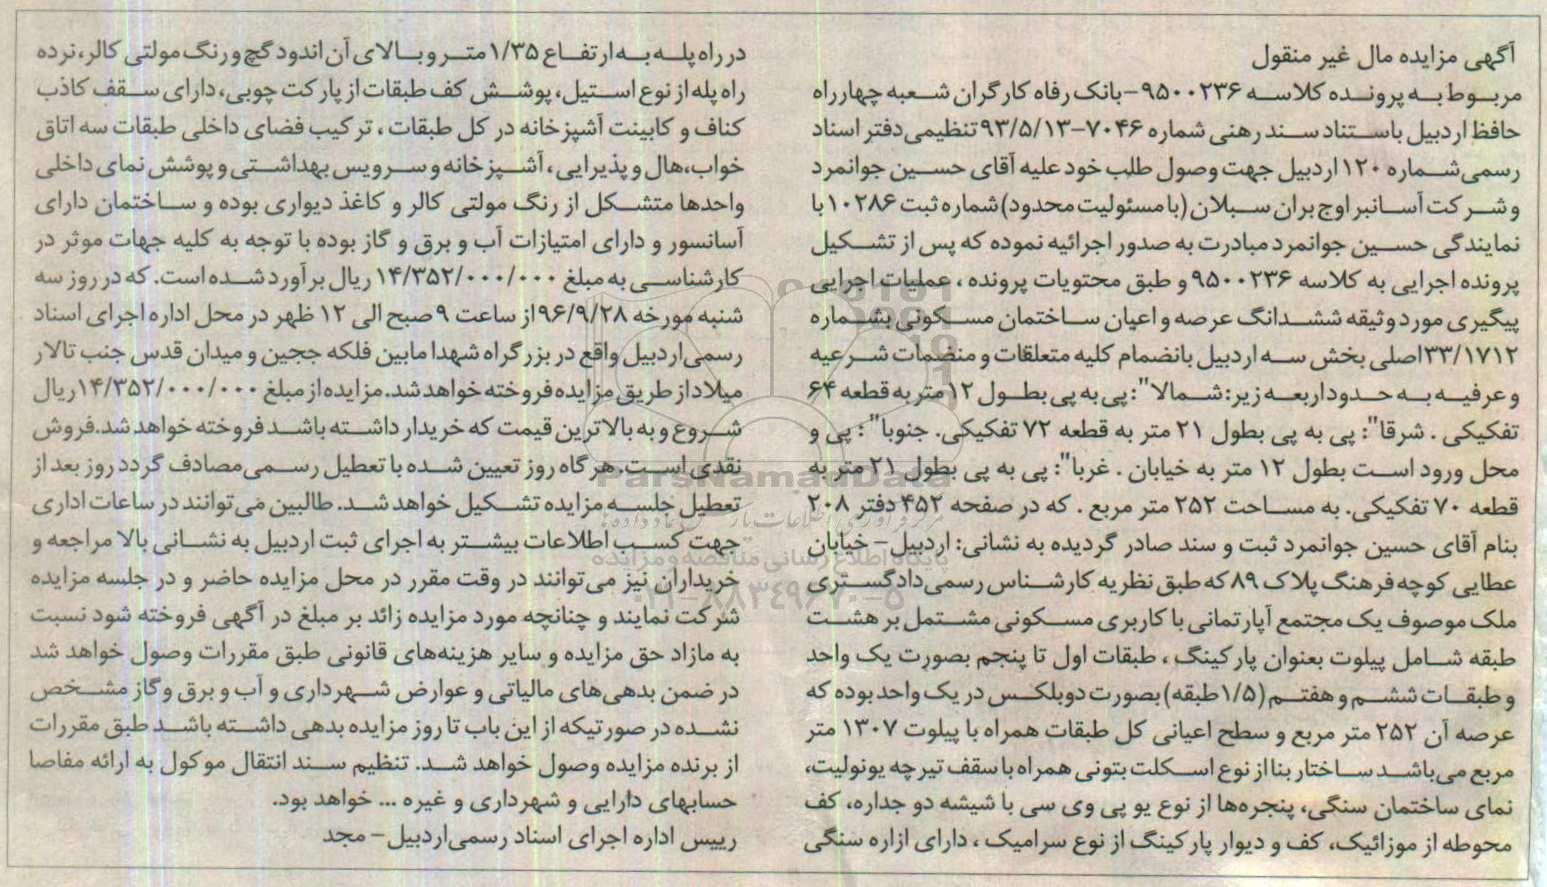 آگهی مزایده مال غیر منقول
مربوط به پرونده کلاسه ۹۵۰۰۲۳۶-بانک رفاه کارگران شعبه چهارراه
حافظ اردبیل باستناد سند رهنی شماره ۷۰۴۶-۹۳/۵/۱۳ تنظیمی دفتر اسناد
رسمی شماره ۱۲۰ اردبیل جهت وصول طلب خود علیه آقای حسین جوانمرد
و شرکت آسانبر اوج بران سبلان (با مسئولیت محدود) شماره ثبت ۱۰۲۸۶ با
نمایندگی حسین جوانمرد مبادرت به صدور اجرائیه نموده که پس از تشکیل
پرونده اجرایی به کلاسه ۹۵۰۰۲۳۶ و طبق محتویات پرونده ، عملیات اجرایی
پیگیری مورد وثیقه ششدانگ عرصه و اعیان ساختمان مسکونی بشماره
۳۳/۱۷۱۲اصلی بخش سه اردبیل بانضمام کلیه متعلقات و منضمات شرعیه
و عرفیه به حدود اربعه زیر: شمالا": پی به پی بطول ۱۲ متر به قطعه ۶۴
تفکیکی . شرقا": پی به پی بطول ۲۱ متر به قطعه ۷۲ تفکیکی. جنوبا": پی و
محل ورود است بطول ۱۲ متر به خیابان . غربا": پی به پی بطول ۲۱ متر به
قطعه ۷۰ تفکیکی. به مساحت ۲۵۲ متر مربع . که در صفحه ۴۵۲ دفتر ۲۰۸
بنام آقای حسین جوانمرد ثبت و سند صادر گردیده به نشانی: اردبیل- خیابان
عطایی کوچه فرهنگ پلاک ۸۹ که طبق نظریه کارشناس رسمی دادگستری
ملک موصوف یک مجتمع آپارتمانی با کاربری مسکونی مشتمل بر هشت
طبقه شامل پیلوت بعنوان پارکینگ ، طبقات اول تا پنجم بصورت یک واحد
و طبقات ششم و هفتم (۱/۵طبقه) بصورت دوبلکس در یک واحد بوده که
عرصه آن ۲۵۲ متر مربع و سطح اعیانی کل طبقات همراه با پیلوت ۱۳۰۷ متر
مربع می‌باشد ساختار بنا از نوع اسکلت بتونی همراه با سقف تیرچه یونولیت،
نمای ساختمان سنگی، پنجره‌ها از نوع یو پی وی سی با شیشه دو جداره، کف
محوطه از موزائیک، کف و دیوار پارکینگ از نوع سرامیک ، دارای ازاره سنگی
در راه پله به ارتفاع ۱/۳۵ متر و بالای آن اندود گچ و رنگ مولتی کالر، نرده
راه پله از نوع استیل، پوشش کف طبقات از پارکت چوبی، دارای سقف کاذب
کناف و کابینت آشپزخانه در کل طبقات ، ترکیب فضای داخلی طبقات سه اتاق
خواب، هال و پذیرایی ، آشپزخانه و سرویس بهداشتی و پوشش نمای داخلی
واحدها متشکل از رنگ مولتی کالر و کاغذ دیواری بوده و ساختمان دارای
آسانسور و دارای امتیازات آب و برق و گاز بوده با توجه به کلیه جهات موثر در
کارشناسی به مبلغ ۱۴/۳۵۲/۰۰۰/۰۰۰ ریال برآورد شده است. که در روز سه
شنبه مورخه ۹۶/۹/۲۸از ساعت ۹ صبح الی ۱۲ ظهر در محل اداره اجرای اسناد
رسمی اردبیل واقع در بزرگراه شهدا مابین فلکه ججین و میدان قدس جنب تالار
میلاد از طریق مزایده فروخته خواهد شد. مزایده از مبلغ ۱۴/۳۵۲/۰۰۰/۰۰۰ریال
شروع و به بالاترین قیمت که خریدار داشته باشد فروخته خواهد شد.فروش
نقدی است. هر گاه روز تعیین شده با تعطیل رسمی مصادف گردد روز بعد از
تعطیل جلسه مزایده تشکیل خواهد شد. طالبین می‌توانند در ساعات اداری
جهت کسب اطلاعات بیشتر به اجرای ثبت اردبیل به نشانی بالا مراجعه و
خریداران نیز می‌توانند در وقت مقرر در محل مزایده حاضر و در جلسه مزایده
شرکت نمایند و چنانچه مورد مزایده زائد بر مبلغ در آگهی فروخته شود نسبت
به مازاد حق مزایده و سایر هزینه‌های قانونی طبق مقررات وصول خواهد شد
در ضمن بدهی‌های مالیاتی و عوارض شهرداری و آب و برق و گاز مشخص
نشده در صورتیکه از این باب تا روز مزایده بدهی داشته باشد طبق مقررات
از برنده مزایده وصول خواهد شد. تنظیم سند انتقال موکول به ارائه مفاصا
حسابهای دارایی و شهرداری و غیره ... خواهد بود.
رییس اداره اجرای اسناد رسمی اردبیل- مجد
ParsNamadData
پایگاه اطلاع رسانی مناقصه و مزایده
۰۲۱-۸۸۳۴۹۶۷۰-۵